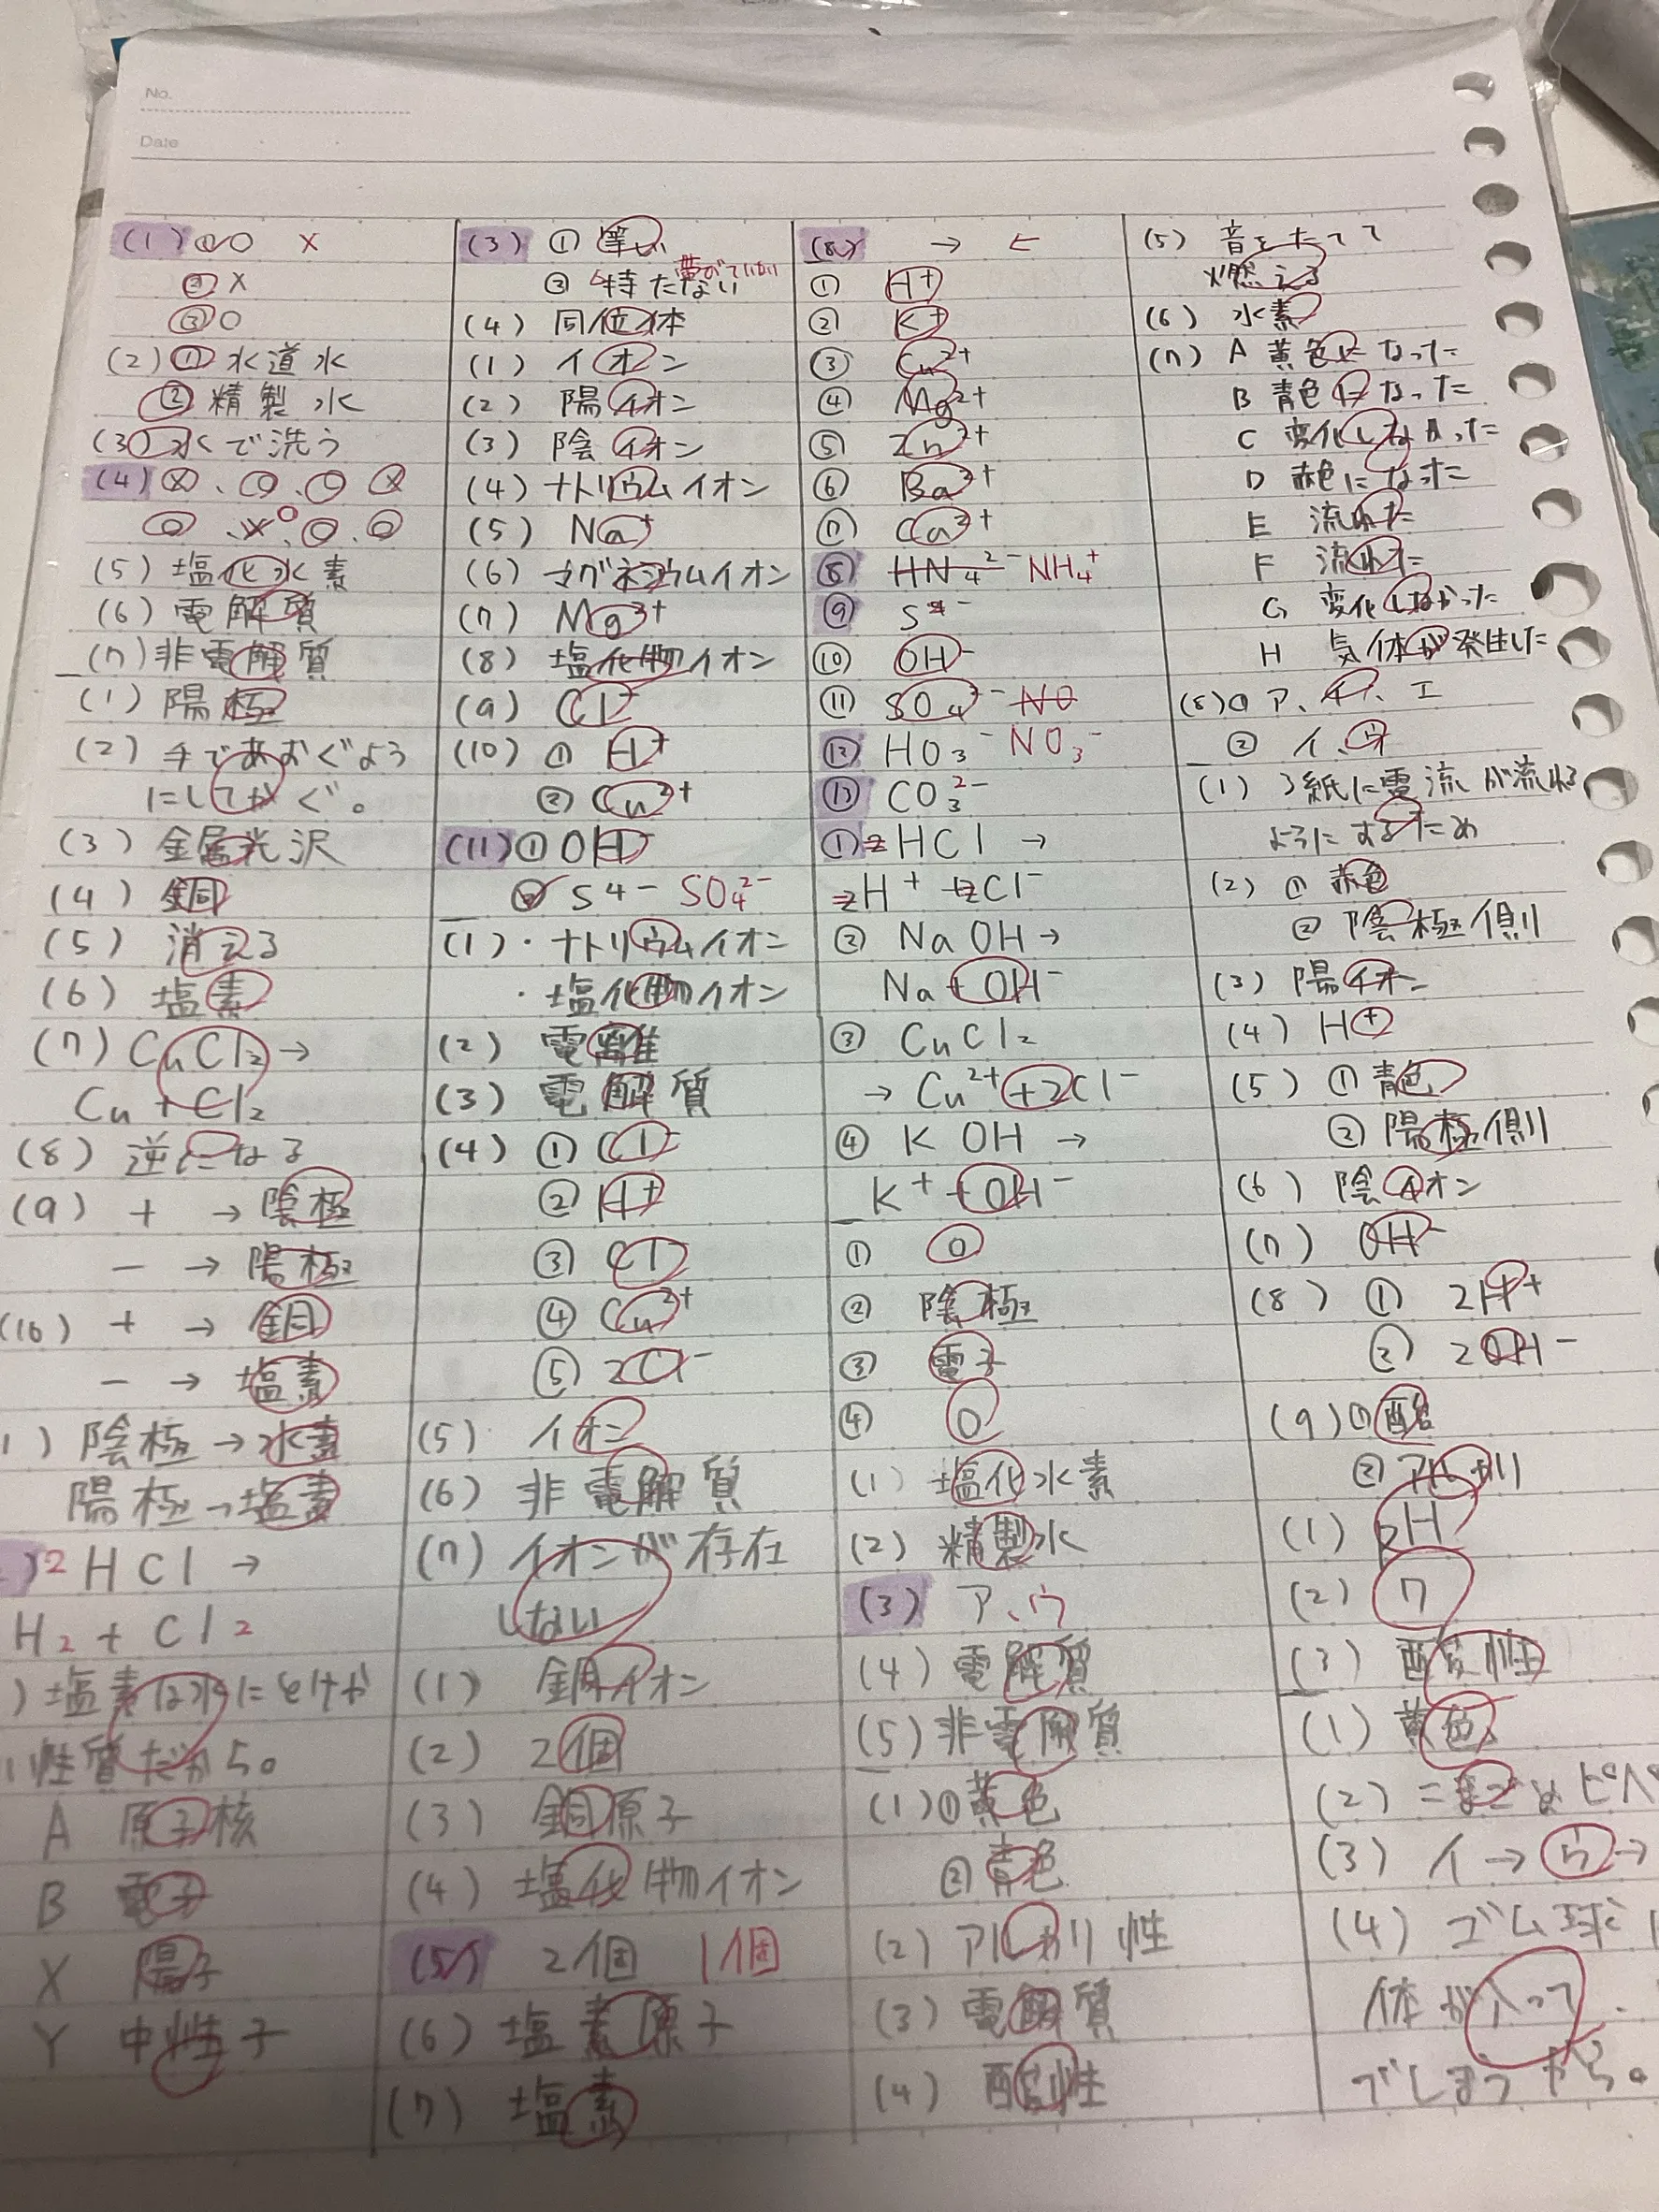 No.
Date
(1) ①○ ×
② ×
③ ○
(2) ① 水道水
② 精製水
(3) 水で洗う
(4) ×、○、○ ×
○、×○、○、○
(5) 塩化水素
(6) 電解質
(7) 非電解質
(1) 陽極
(2) 手であおぐよう
にしてかぐ。
(3) 金属光沢
(4) 銅
(5) 消える
(6) 塩素
(7) CuCl2 →
Cu + Cl2
(8) 逆になる
(9) + → 陰極
− → 陽極
(10) + → 銅
− → 塩素
) 陰極 → 水素
陽極 → 塩素
) 2HCl →
H2 + Cl2
) 塩素は水にとけや
い性質だから。
A 原子核
B 電子
X 陽子
Y 中性子
(3) ① 等しい
② 持たない
(4) 同位体
(1) イオン
(2) 陽イオン
(3) 陰イオン
(4) ナトリウムイオン
(5) Na+
(6) マグネシウムイオン
(7) Mg2+
(8) 塩化物イオン
(9) Cl−
(10) ① H+
② Cu2+
(11) ① OH−
② S4− SO4 2−
(1) ・ナトリウムイオン
・塩化物イオン
(2) 電離
(3) 電解質
(4) ① Cl−
② H+
③ Cl−
④ Cu2+
⑤ 2Cl−
(5) イオン
(6) 非電解質
(7) イオンが存在
しない
(1) 銅イオン
(2) 2個
(3) 銅原子
(4) 塩化物イオン
(5) 2個 1個
(6) 塩素原子
(7) 塩素
(8) → ←
① H+
② K+
③ Cu2+
④ Mg2+
⑤ Zn2+
⑥ Ba2+
⑦ Ca2+
⑧ HN4 2− NH4+
⑨ S −
⑩ OH−
⑪ SO4 2− NO
⑫ HO3− NO3−
⑬ CO3 2−
① 2HCl →
2H+ + 2Cl−
② NaOH →
Na + OH−
③ CuCl2
→ Cu2+ + 2Cl−
④ KOH →
K+ + OH−
① ○
② 陰極
③ 電子
④ ○
(1) 塩化水素
(2) 精製水
(3) ア、ウ
(4) 電解質
(5) 非電解質
(1) ① 黄色
② 青色
(2) アルカリ性
(3) 電解質
(4) 酸性
(5) 音をたてて
燃える
(6) 水素
(7) A 黄色になった
B 青色になった
C 変化しなかった
D 赤色になった
E 流れた
F 流れた
G 変化しなかった
H 気体が発生した
(8) ① ア、イ、エ
② イ、ウ
(1) ろ紙に電流が流れる
ようにするため
(2) ① 赤色
② 陰極側
(3) 陽イオン
(4) H+
(5) ① 青色
② 陽極側
(6) 陰イオン
(7) OH−
(8) ① 2H+
② 2OH−
(9) ① 酸
② アルカリ
(1) pH
(2) 7
(3) 酸性
(1) 黄色
(2) こまごめピペ
(3) イ → ウ →
(4) ゴム球に
体が入って
でしまうから。